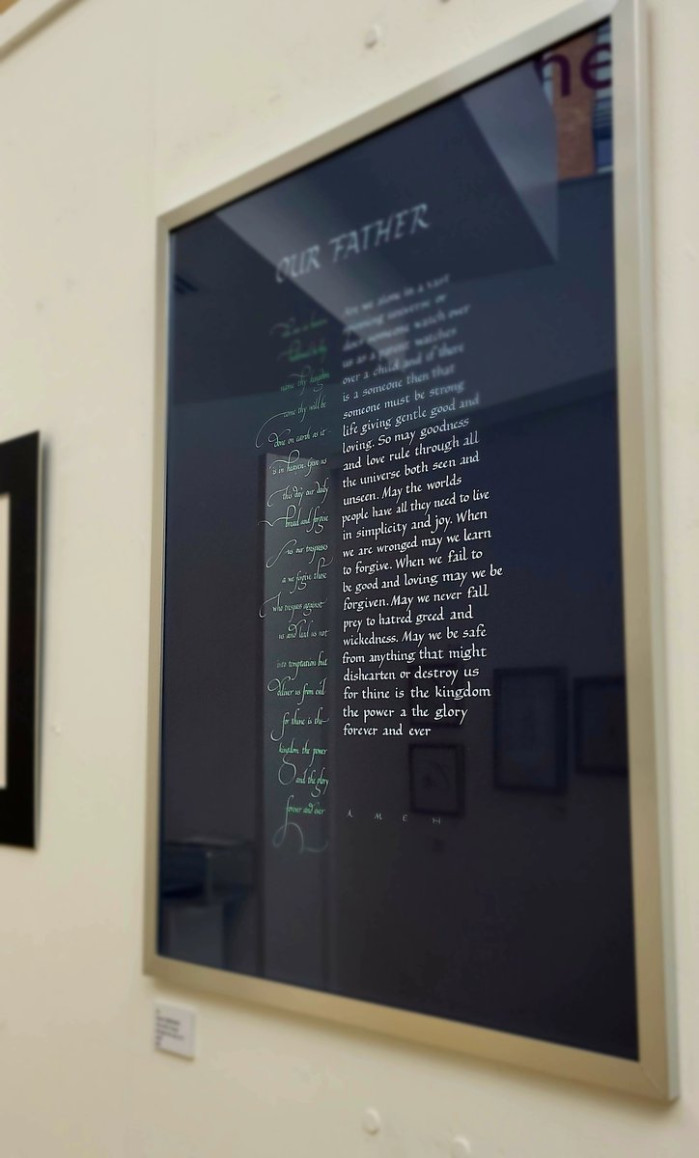 he
OUR FATHER
hallowed be thy
name thy kingdom
come thy will be
done on earth as it
is in heaven. Give us
this day our daily
bread and forgive
us our trespasses
as we forgive those
who trespass against
us and lead us not
into temptation but
deliver us from evil
for thine is the
kingdom the power
and the glory
forever and ever
Are we alone in a vast
universe or
does someone watch over
us as a parent watches
over a child and if there
is a someone then that
someone must be strong
life giving gentle good and
loving. So may goodness
and love rule through all
the universe both seen and
unseen. May the worlds
people have all they need to live
in simplicity and joy. When
we are wronged may we learn
to forgive. When we fail to
be good and loving may we be
forgiven. May we never fall
prey to hatred greed and
wickedness. May we be safe
from anything that might
dishearten or destroy us
for thine is the kingdom
the power a the glory
forever and ever
A M E N